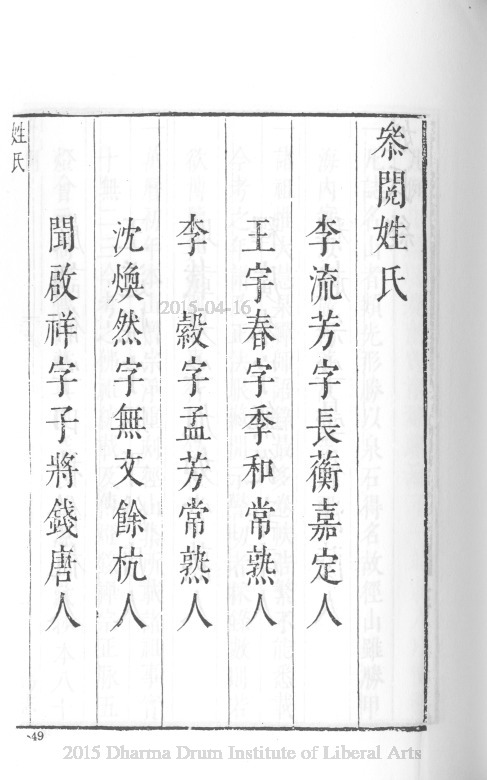 叅閱姓氏
李流芳字長蘅嘉定人
王宇春字季和常熟人
李穀字孟芳常熟人
沈煥然字無文餘杭人
聞啟祥字子將錢唐人
姓氏
49
2015-04-16
2015 Dharma Drum Institute of Liberal Arts